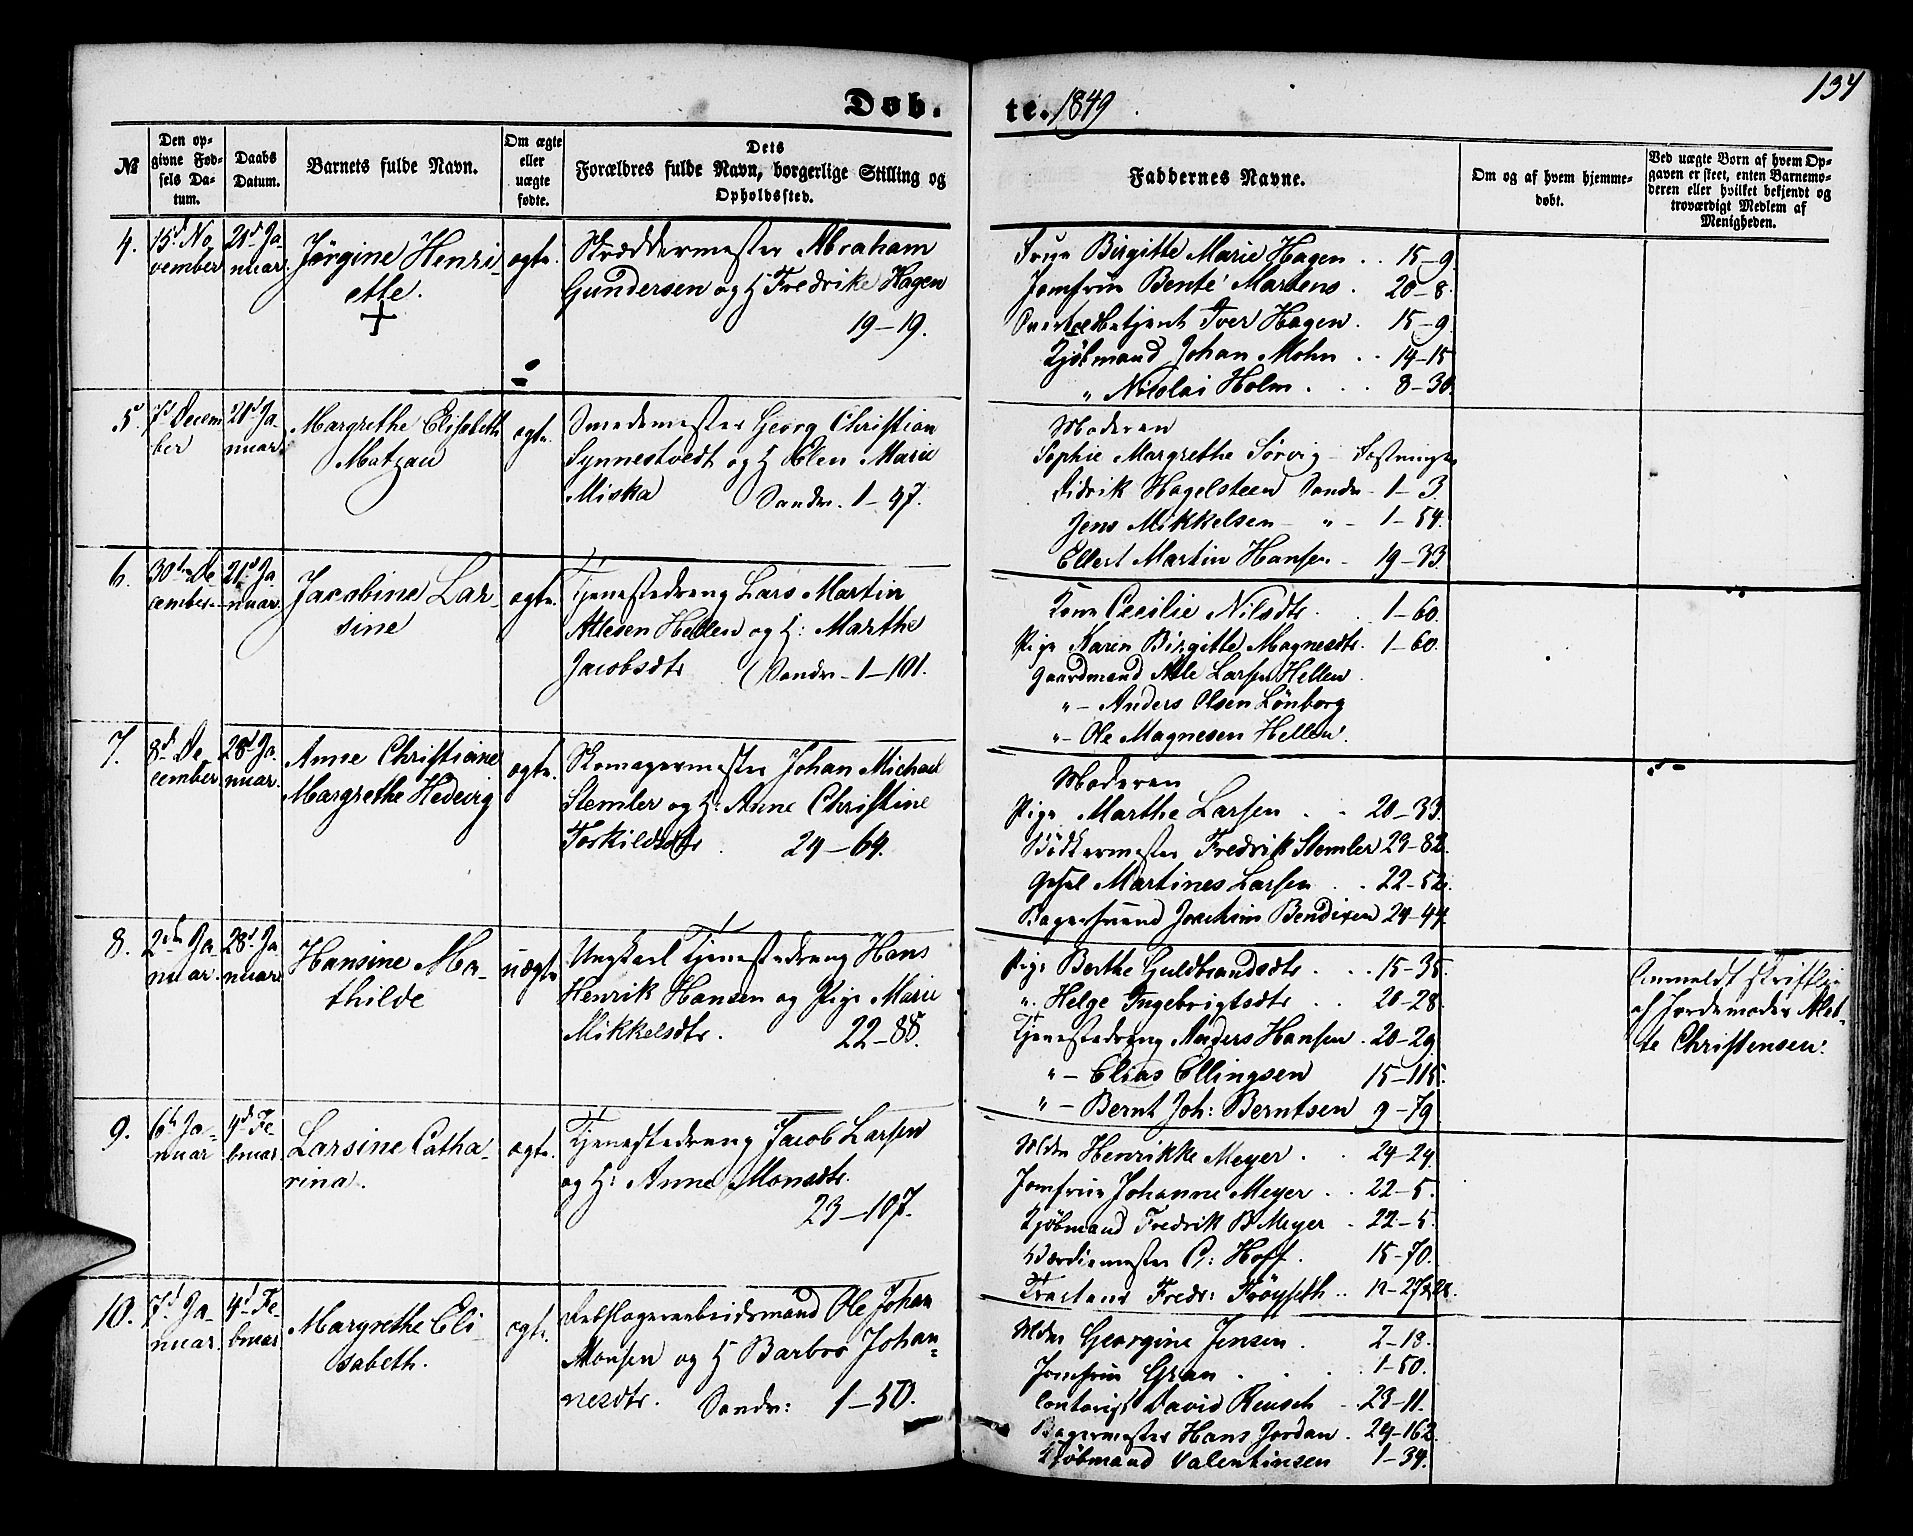 Døb.
te. 1849
134
№
Den op-
givne Fød-
sels Da-
tum.
Daabs
Datum.
Barnets fulde Navn.
Om ægte
eller
uægte
fødte.
Dets
Forældres fulde Navn, borgerlige Stilling og
Opholdssted.
Faddernes Navne.
Om og af hvem hjemme-
døbt.
Ved uægte Børn af hvem Op-
gaven er skeet, enten Barnemo-
deren eller hvilket bekjendt og
troværdigt Medlem af
Menigheden.
4.
15d No
vember
21d Ja-
nuar.
Jørgine Henri-
ette.
ægte.
Skræddermester Abraham
Gundersen og H Fredrike Hagen
19-19.
Birgitte Marie Hagen . . 15-9.
Jomfru Bente Martens . 20-8.
Iver Hagen. 15-9.
Kjøbmand Johan Mohn . . 14-15
" Nicolai Holm . . . 8-30.
5.
7d Decem
ber
21d Ja-
nuar.
Margrethe Elisabeth
Matzau
ægte.
Smedemester Georg Christian
Synnestvedt og H Elen Marie
Miska Sandv. 1-47.
Moderen
Sophie Margrethe Sørvig -
Didrik Hagelsteen Sandv - 1-3.
Jens Mikkelsen - " - 1-54.
Ellert Martin Hansen - 19-33.
6.
30te De-
cember.
21d Ja-
nuar.
Jacobine Lar-
sine
ægte.
Tjenestedreng Lars Martin
Atlesen Hellen og H: Marthe
Jacobsdtr Sandv - 1-101.
Kone Cecilie Nilsdtr. . 1-60.
Pige Karen Birgitte Magnesdtr. 1-60.
Gaardmand Atle Larsen Hellen
" - Anders Olsen Lønborg
" - Ole Magnesen Hellen.
7.
8d De-
cember
28d Ja-
nuar.
Anne Christiane
Margrethe Hedevig
ægte.
Skomagermester Johan Michael
Stemler og H: Anne Christine
Torkildsdtr. 24-64.
Moderen
Pige Marthe Larsen . . 20-33.
Bødkermester Fredrik Stemler 23-82.
Gesel Martines Larsen . . 22-52.
Bagersvend Joachim Bendixen 24-44.
8.
2den Ja-
nuar.
28d Ja-
nuar.
Hansine Ma-
thilde
uægte
Ungkarl Tjenestedreng Hans
Henrik Hansen og Pige Marie
Mikkelsdtr. 22-88.
Pige Berthe Guldbrandsdtr . . 15-35.
". Helge Ingebrigtsdtr . . 20-28.
Tjenestedreng Anders Hansen . 20-29.
" - Elias Ellingsen 15-115.
" - Bernt Joh: Berntsen 9-79
Anmeldt skriftlig
af Jordemoder Met-
te Christensen.
9.
6te Ja-
nuar
4d Fe-
bruar.
Larsine Catha-
rina.
ægte.
Tjenestedreng Jacob Larsen
og H: Anne Monsdtr.
23-107.
Mdm Henrikke Meyer . . 24-24.
Jomfrue Johanne Meyer . . 22-5.
Kjøbmand Fredrik B Meyer . 22-5.
C: Hoff. 15-70.
Fredr: Frøyseth . .
10.
7d Ja-
nuar.
4d Fe-
bruar
Margrethe Eli-
sabeth.
ægte.
Rebslagerarbeidsmand Ole Johan
Monsen og H Barbro Johan-
nesdtr. Sandv: 1-50.
Mdm Georgine Jensen 2-18.
Jomfru Gran . . . . 1-50.
David Reusch - 23-11.
Bagermester Hans Jordan . 24-162.
Kjøbmand Valentinsen 1-34.